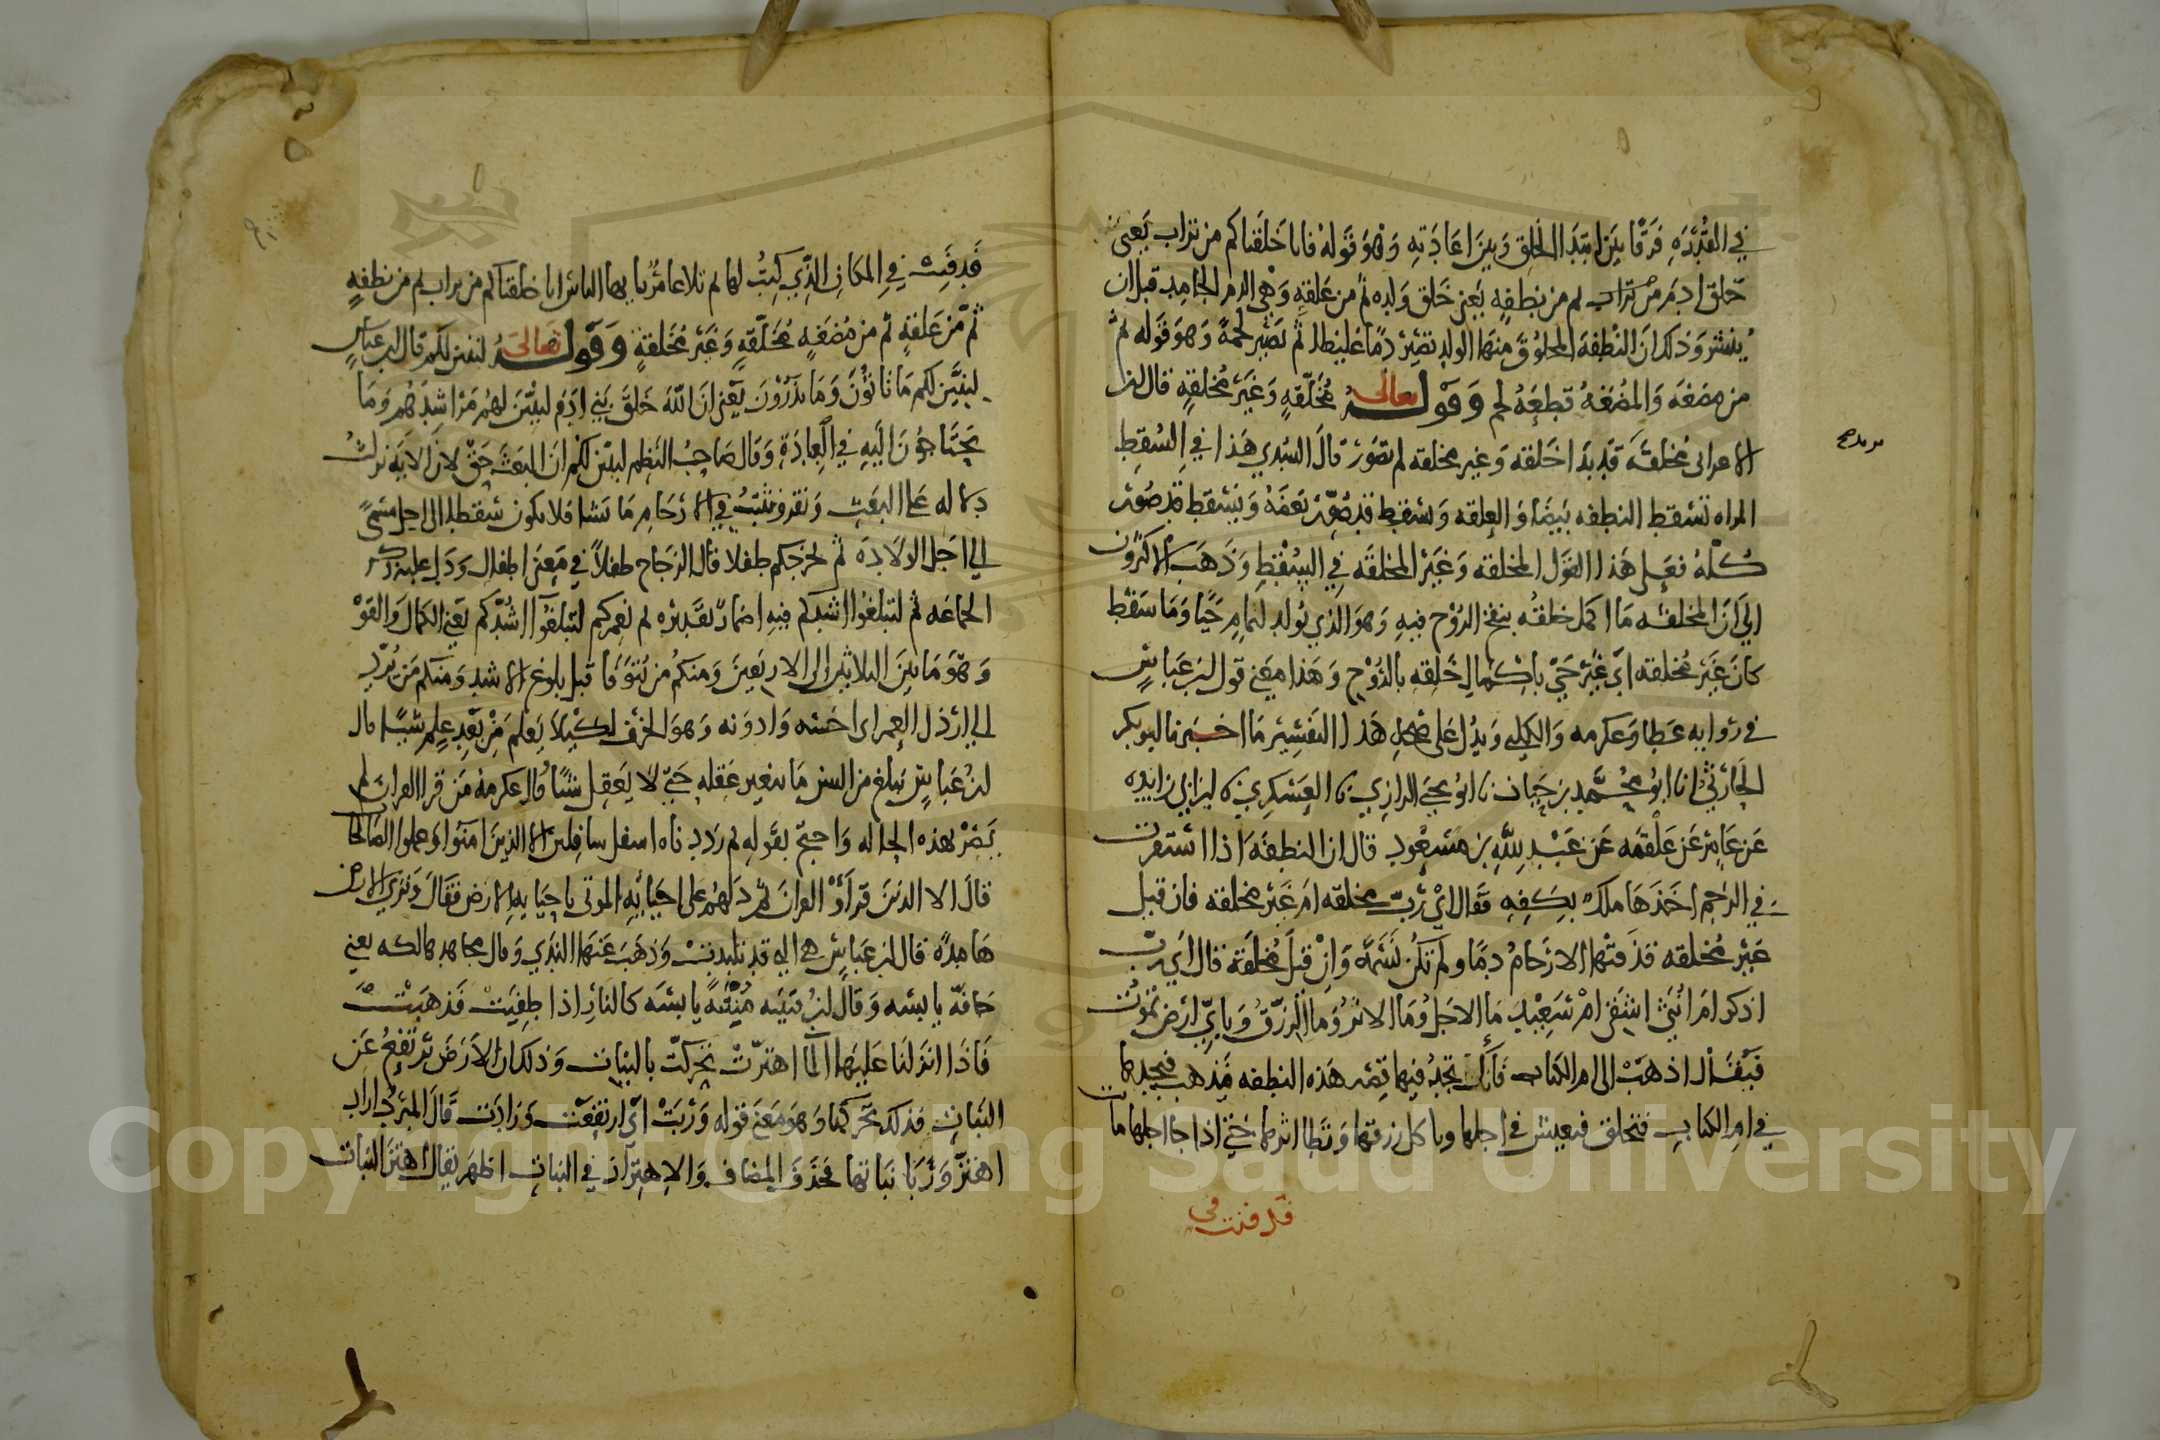 في القدره فرقا بين ابتدا الخلق وبين اعادته وهو قوله فانا خلقناكم من تراب يعني
خلق ادم من تراب ثم من نطفه يعني خلق ولده ثم من علقه وهي الدم الجامد قبل ان
ييبس وذلك ان النطفه المخلوق منها الولد تصير دما غليظا ثم تصير لحمة وهو قوله ثم
من مضغه والمضغة قطعة لحم وقوله تعالى مخلقة وغير مخلقة قال ابن
الاعرابى مخلقة قد بدا خلقه وغير مخلقه لم تصور قال السدي هذا في السقط
المراه تسقط النطفه بيضا والعلقه وتسقط قد صور بعضه وتسقط قد صور
كله فعلى هذا القول المخلقه وغير المخلقه في السقط وذهب الاكثرون
الى ان المخلقه ما اكمل خلقه بنفخ الروح فيه وهو الذي يولد لتمام حيا وما سقط
كان غير مخلقه اي غير حي باكمال خلقه بالروح وهذا معنى قول ابن عباس
في روايه عطا وعكرمه والكلبي ويدل على صحه هذا التفسير ما اخبرنا ابو بكر
الحارثي انا ابو محمد بن حيان نا ابو يحيى الرازي نا العسكري نا ابن ابي زايده
عن عامر عن علقمه عن عبد الله بن مسعود قال ان النطفه اذا استقرت
في الرحم اخذها ملك بكفه فقال اي رب مخلقه ام غير مخلقه فان قيل
غير مخلقه قذفتها الارحام دما ولم تكن نسمة وان قيل مخلقة قال اي رب
اذكر ام انثى اشقي ام سعيد ما الاجل وما الاثر وما الرزق وباي ارض تموت
فيقال اذهب الى ام الكتاب فانك تجد فيها قصه هذه النطفه فيذهب فيجدها
في ام الكتاب فتخلق فتعيش في اجلها وتاكل رزقها وتطا اثرها حتى اذا جا اجلها ماتت
قدفنت في
فدفنت في المكان الذي كتب لها ثم تلا عامر يا ايها الناس انا خلقناكم من تراب ثم من نطفه
ثم من علقه ثم من مضغه مخلقه وغير مخلقة وقوله تعالى لنبين لكم قال ابن عباس
لنبين لكم ما تاتون وما تذرون يعني ان الله خلق بني ادم ليبين لهم مراشدهم وما
يحتاجون اليه في العبادة وقال صاحب النظم لنبين لكم ان البعث حق لان الايه نزلت
دلاله على البعث ونقر ونثبت في الارحام ما نشا فلا يكون سقطا الى اجل مسمى
الى اجل الولاده ثم نخرجكم طفلا قال الزجاج طفلا في معنى اطفال ودل عليه ذكر
الجماعه ثم لتبلغوا اشدكم فيه اضمار تقديره ثم نعمركم لتبلغوا اشدكم يعني الكمال والقوه
وهو ما بين الثلاثين الى الاربعين ومنكم من يتوفا قبل بلوغ الاشد ومنكم من يرد
الى ارذل العمر اى اخسه وادونه وهو الخرف لكيلا يعلم من بعد علم شيا قال
ابن عباس يبلغ من السن ما يتغير عقله حتى لا يعقل شيا قال عكرمه من قرا القران لم
يصر بهذه الحاله واحتج بقوله ثم رددناه اسفل سافلين الا الذين امنوا وعملوا الصالحات
قال الا الذين قراوا القران ثم دلهم على احيائه الموتى باحيايه الارض فقال وترى الارض
هامدة قال ابن عباس هي التي قد تلبدت وذهب عنها الندي وقال مجاهد هالكه يعني
جافه يابسه وقال ابن قتيبه ميتة يابسه كالنار اذا طفيت فذهبت
فاذا انزلنا عليها الما اهتزت تحركت بالنبات وذلك ان الارض ترتفع عن
النبات فذلك تحركها وهو معنى قوله وربت اي ارتفعت وزادت قال المبرد اراد
اهتز وربا نباتها فحذف المضاف والاهتزاز في النبات اظهر يقال اهتز النبات
Copyright © King Saud University